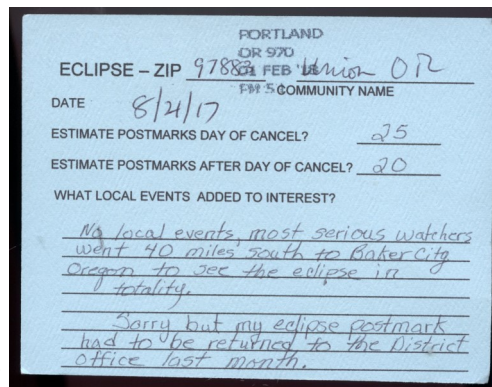 PORTLAND
OR 970
01 FEB '18
PM 5
ECLIPSE – ZIP 97883 Union OR
COMMUNITY NAME
DATE 8/21/17
ESTIMATE POSTMARKS DAY OF CANCEL? 25
ESTIMATE POSTMARKS AFTER DAY OF CANCEL? 20
WHAT LOCAL EVENTS ADDED TO INTEREST?
No local events, most serious watchers
went 40 miles south to Baker City
Oregon to see the eclipse in
totality.
Sorry but my eclipse postmark
had to be returned to the District
office last month.